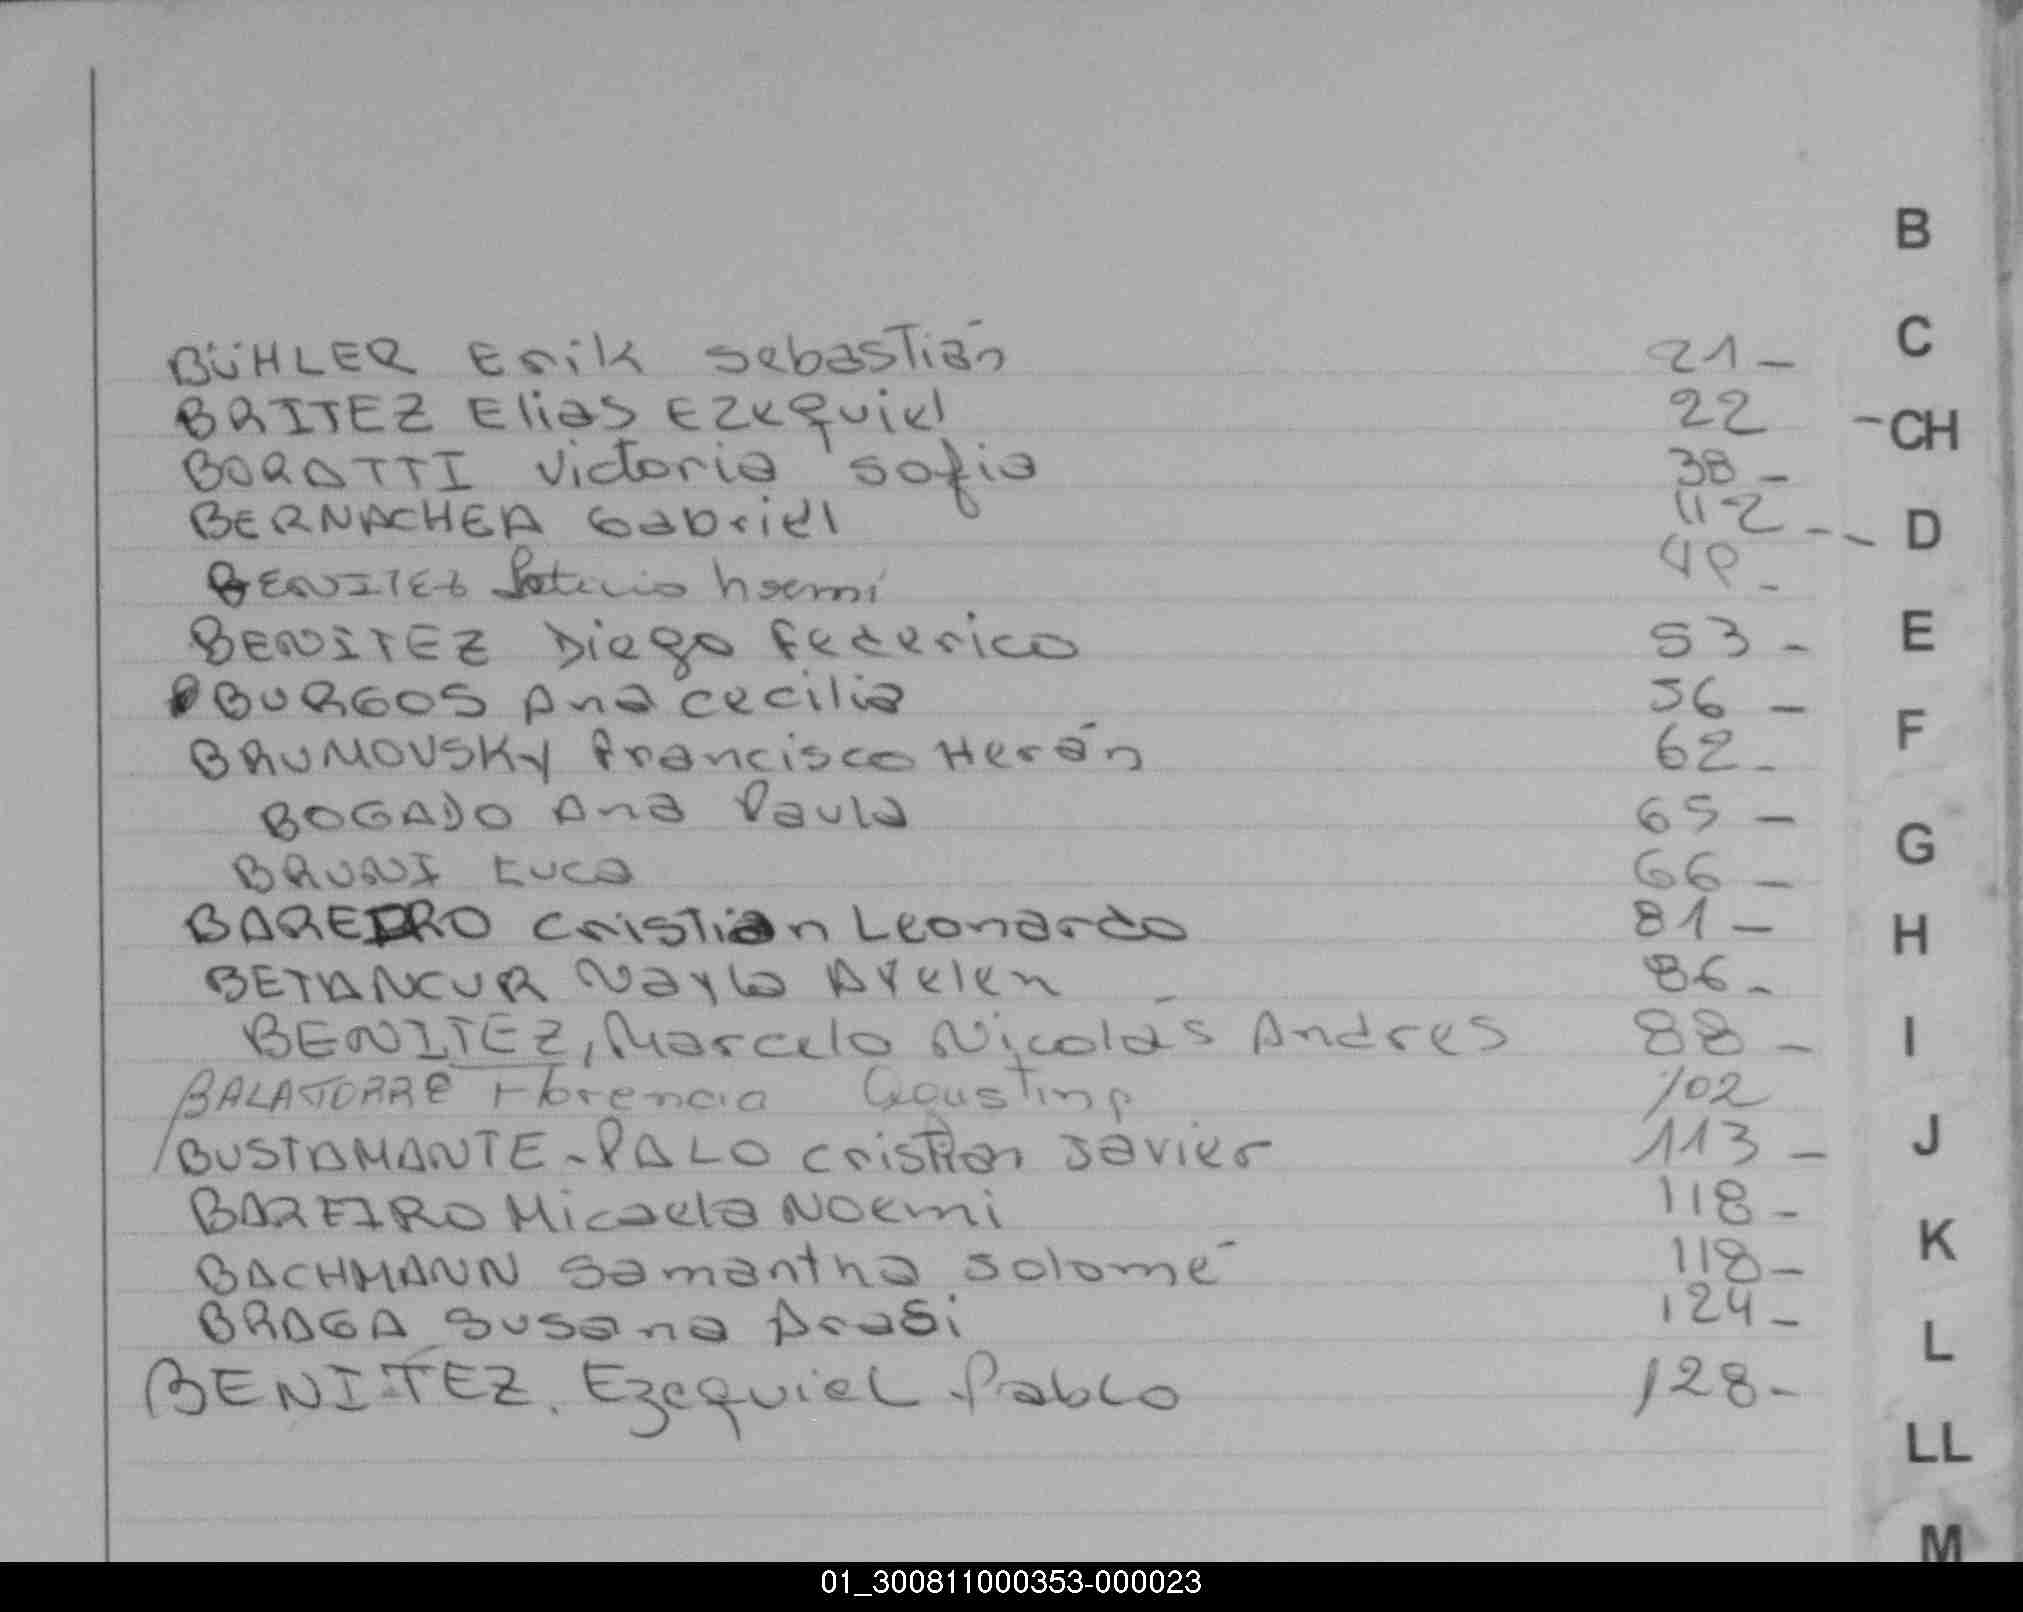 B
C
BÜHLER Erik Sebastián 21 -
BRITEZ Elias EZequiel 22 - CH
BORATTI Victoria Sofia 38 -
BERNACHEA Gabriel 42 - - D
BENITEZ hoemí 49 -
E
BENITEZ Diego Federico 53 -
BURGOS Ana cecilia 56 -
F
BRUMOVSKY Francisco Herán 62 -
BOGADO Ana Paula 65 -
G
BRUNI Luca 66 -
BAREIRO Cristian Leonardo 81 -
H
BETANCUR Nayla Ayelen 86 -
BENITEZ, Marcelo Nicolás Andres 88 -
I
BALATORRE Florencia Agustina 102
BUSTAMANTE - PALO Cristian Javier 113 -
J
BAREIRO Micaela NOemi 118 -
K
BACHMANN Samantha Solomé 118 -
BRAGA Susana Arasi 124 -
L
BENITEZ. Ezequiel Pablo 128 -
LL
M
01_300811000353-000023